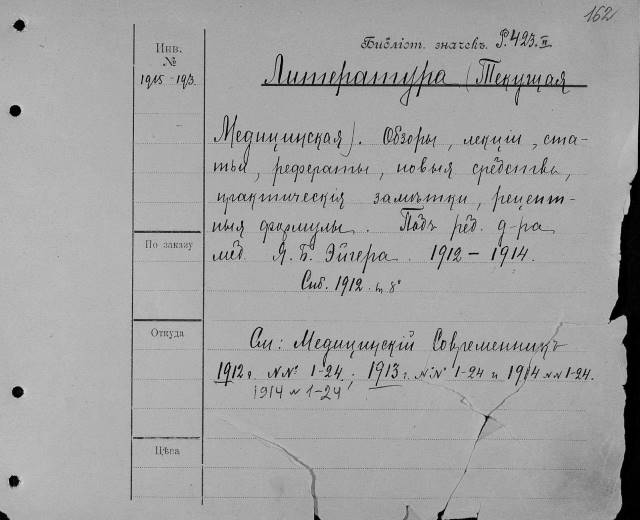 162
Библіот. значекъ. P.423.II
Инв.
№
1915-193.
Литература (Текущая
Медицинская). Обзоры, лекціи, ста-
тьи, рефераты, новыя средства,
практическія замѣтки, рецепт-
ныя формулы. Подъ ред. д-ра
мед. Я. Б. Эйгера. 1912-1914.
По заказу
Спб. 1912. in 8°
Откуда
См: Медицинскій Современникъ
1912г. №№ 1-24; 1913г. №№ 1-24 и 1914 №№ 1-24.
1914 № 1-24
Цѣна